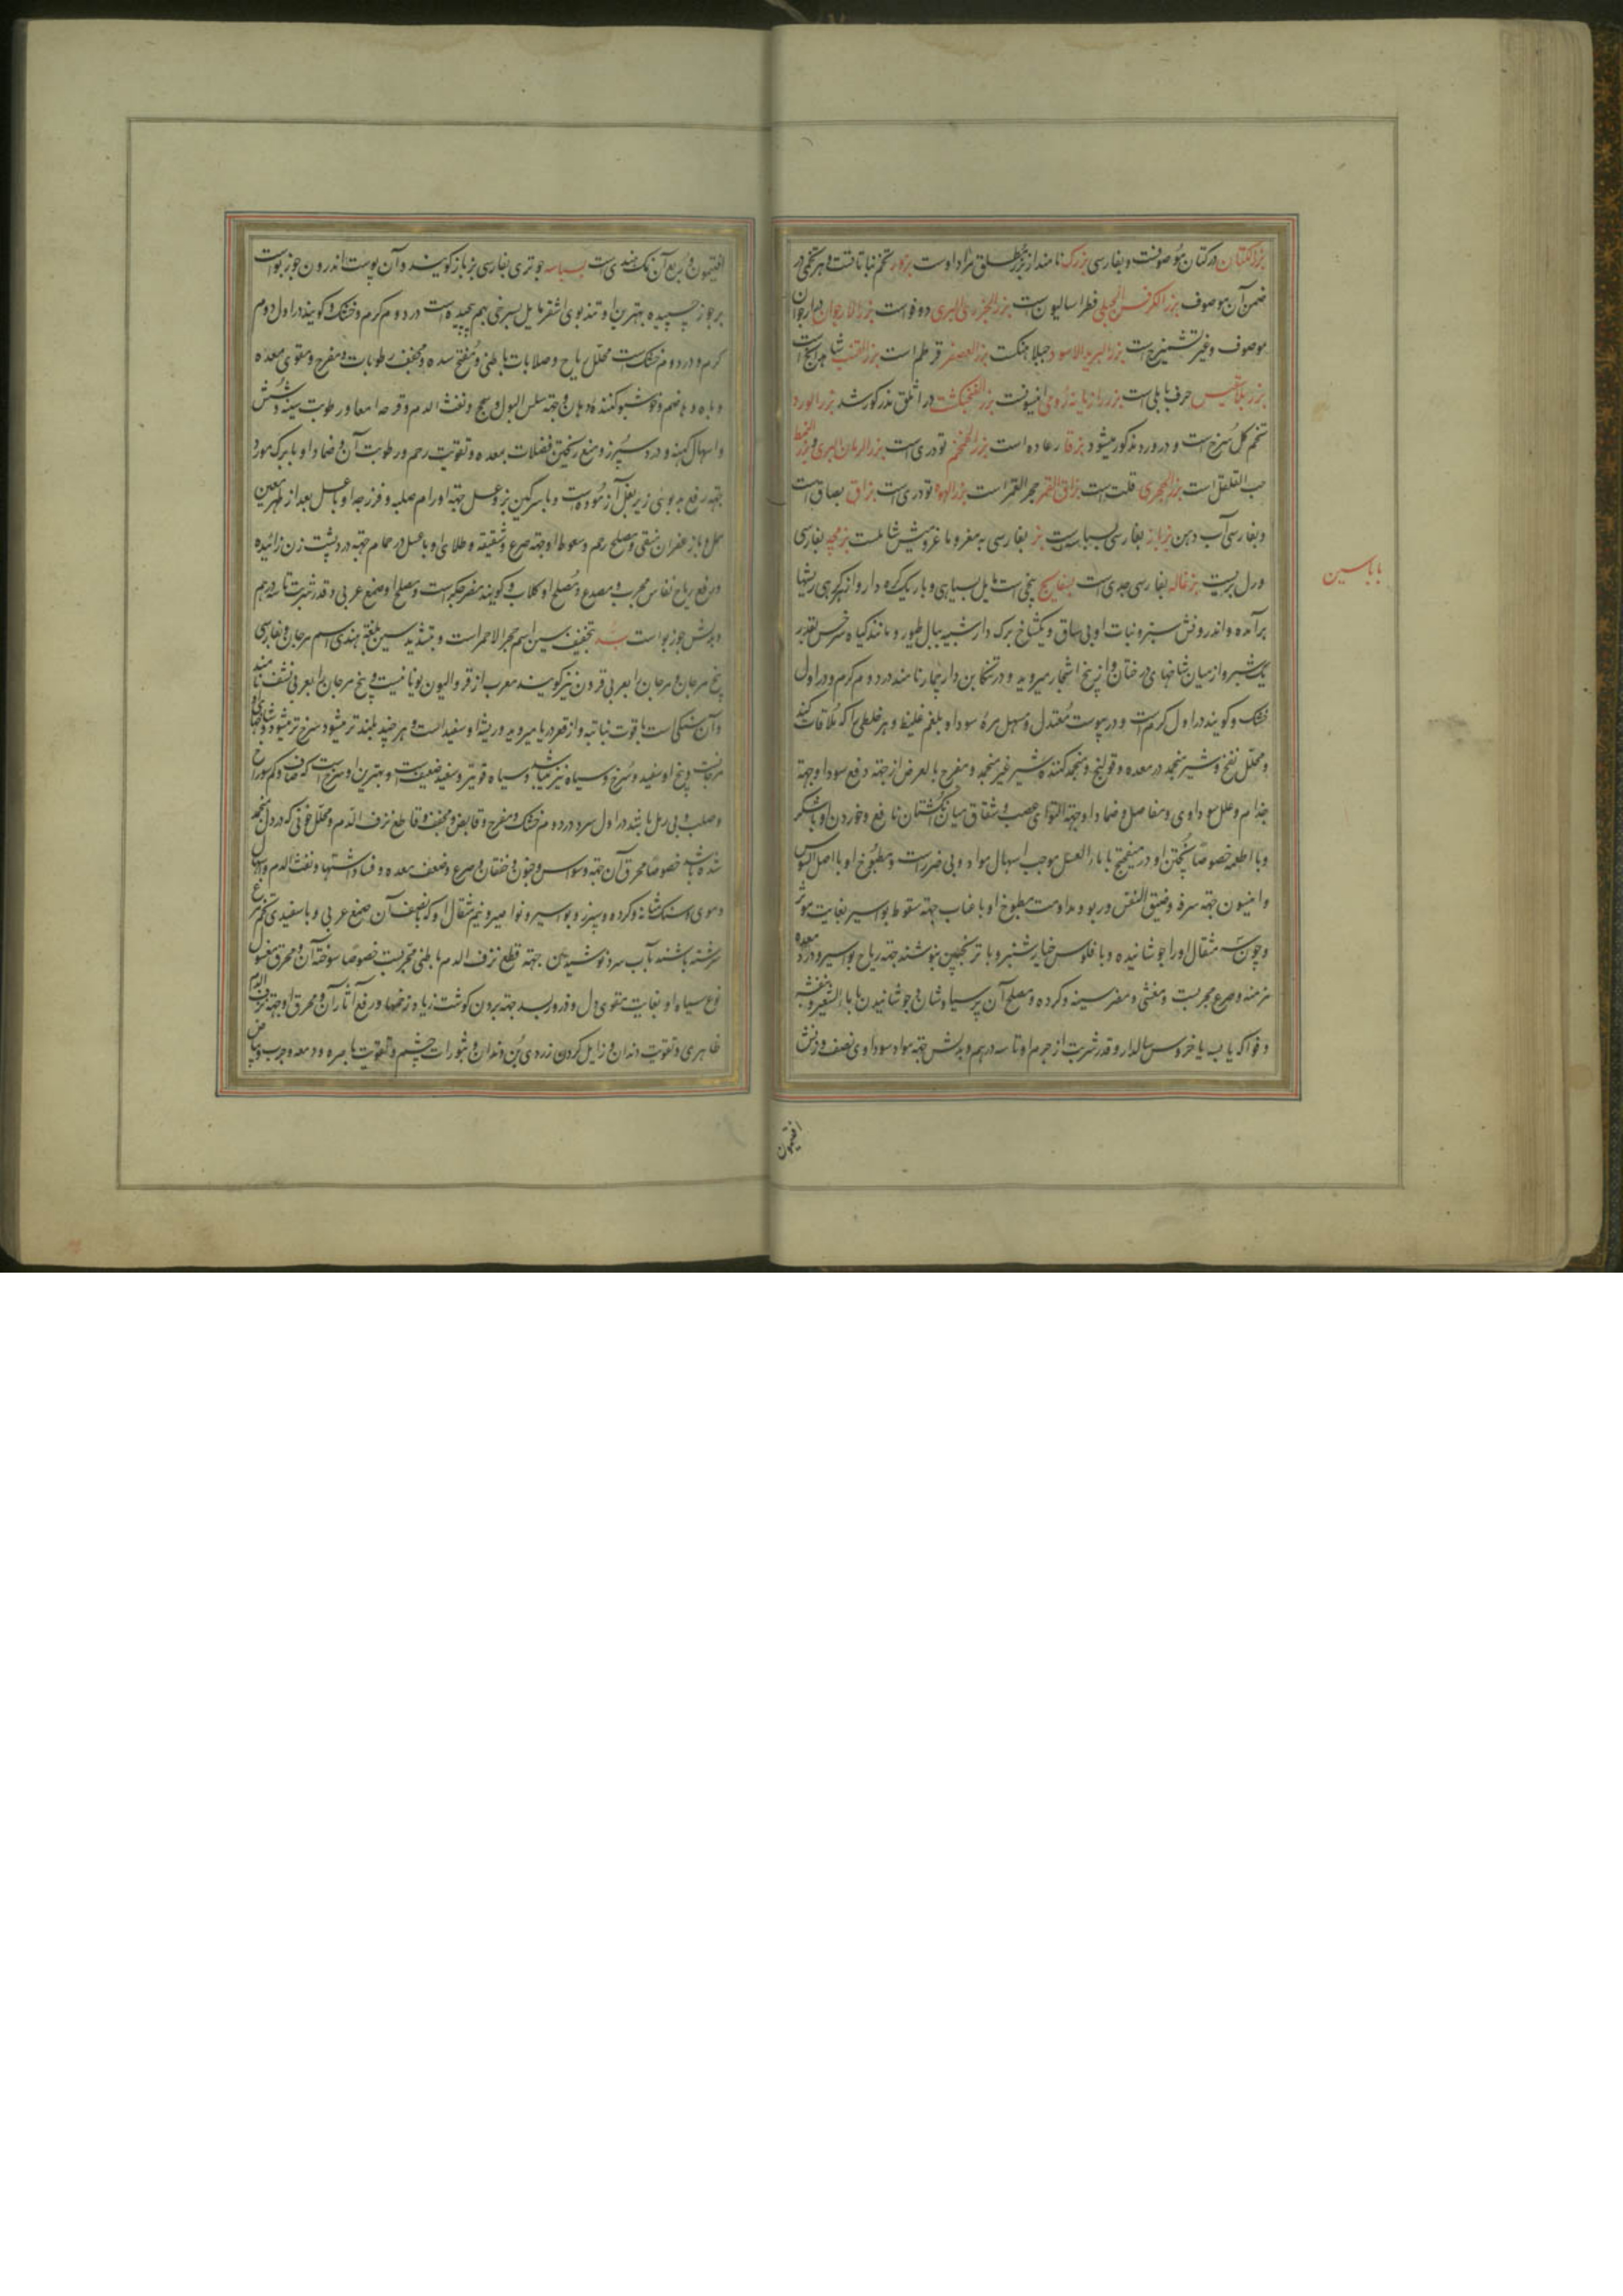 بزر الکتان در کتان موصوفست و بفارسی بزرک نامند از بزر مطلق مراد اوست بزور تخم نباتاتست و هر تخمی در
ضمن آن موصوف بزر الکرفس الجبلی فطراسالیون است بزر الجزر البری دوقو است بزر الارجوان در ارجوان
موصوف و غیر تشمیزج است بزر البربد الاسود جبلاهنگ است بزر العصفر قرطم است بزر القنب شاهدانج است
بزر بلقیس حرف بابلی است بزر رازیانه رومی انیسونست بزر الفنجنکشت در اثلق مذکور شد بزر الورد
تخم کل سرخ است و در ورد مذکور میشود بزقار رعاده است بزر الخمخم تودری است بزر الرمان البری و بزر القبط
حب القلقل است بزر الهجری قلت است بزاق القمر حجر القمر است بزر الهوه تودری است بزاق بصاق است
و بفارسی آب دهن بزباز بفارسی بسباسه است بز بفارسی به معز و ماعز و میش شاملست بزمجه بفارسی
ورل بریست بزغاله بفارسی جدی است بسفایج بیخی است مایل بسیاهی و باریک و کره دار و از هر کرهی ریشها
برآمده و اندرونش سبز و نبات او بی ساق و یکشاخ برک دار شبیه ببال طیور و مانند کیاه سرخس بقدر
یک شبر و از میان شاخهای درختان و از بیخ اشجار میروید و در تنکابن دار چمار نامند در دوم کرم و در اول
خشک و کویند در اول کرم است و در یبوست معتدل و مسهل مره سودا و بلغم غلیظ و هر خلطی را که ملاقات کند
و محلل نفخ و شیر منجمد در معده و قولنج و منجمد کننده شیر غیر منجمد و مفرح بالعرض از جهة دفع سودا و جهة
جذام و علل سوداوی و مفاصل و ضماد او جهة التوای عصب و شقاق میان انکشتان نافع و خوردن او با شکر
و با اطعمه خصوصا پختن او در میفختج با ماء العسل موجب اسهال مواد و بی ضرر است و مطبوخ او با اصل السوس
و انیسون جهة سرفه و ضیق النفس و ربو و مداومت مطبوخ او با عناب جهة سقوط بواسیر بغایت موثر
و چون سه مثقال او را جوشانیده و با فلوس خیارشنبر و با ترنجبین بنوشند جهة ریاح بواسیر و درد معده
مزمنه و صرع مجربست و مغثی و مضر سینه و کرده و مصلح آن پرسیاوشان و جوشانیدن با ماء الشعیر و بنفشه
و فواکه یا ب یا خروس سالدار و قدر شربت از جرم او تا سه درهم و بدلش جهة مواد سوداوی نصف وزنش
افتیمون
باباسین
افتیمون و ربع آن نمک هندی است بسباسه جوتری بفارسی بزباز کویند و آن پوست اندرون جوز بوا است
بر جوز چسپیده بهترین او تند بوی اشقر مایل بسرخی بهم پیچیده است در دوم کرم و خشک و کویند در اول دوم
کرم و در دوم خشک است محلل ریاح و صلابات باطنی و مفتح سده و مجفف رطوبات و مفرح و مقوی معده
و باه و هاضم و خوشبو کننده دهان و جهة سلس البول و سحج و نفث الدم و قرحه امعا و رطوبت سینه و شش
و اسهال کهنه و درد سپرز و منع ریختن فضلات بمعده و تقویت رحم و رطوبت آن و ضماد او با برک مورد
جهة رفع بدبوئی زیر بغل آزموده است و با سرکین بز و عسل جهة اورام صلبه و فرزجه او با عسل بعد از طهر معین
حمل و با زعفران منقی و مصلح رحم و سعوط او جهة صرع و شقیقه و طلای او با عسل در حمام جهة درد پشت زن زائیده
و رفع ریاح نفاس مجرب و مصدع و مصلح او کلاب و کویند مضر جکر است و مصلح او صمغ عربی و قدر شربت تا سه درهم
و بدلش جوز بوا است بسد بتخفیف سین اسم حجر الاحمر است و بتشدید سین بلغة هندی اسم مرجان و بفارسی
بیخ مرجان و مرجان را بعربی قرون نیز کویند معرب از قروالیون یونانیست و بیخ مرجان را بعربی نشف نامند
و آن سنکی است با قوت نباتیه و از قعر دریا میروید و ریشه او سفید است و هر چند بلند تر میشود سرخ تر میشود و شاخهای او
مرجانست و بیخ او سفید و سرخ و سیاه نیز میباشد و سیاه قویتر و سفید ضعیف است و بهترین او سرخ است که صاف و کم سوراخ
و صلب و بی رمل باشد در اول سرد در دوم خشک و مفرح و قابض و مجفف و قاطع نزف الدم و محلل خونی که در دل منجمد
شده باشد خصوصا محرق آن جهة وسواس و جنون و خفقان و صرع و ضعف معده و فساد اشتها و نفث الدم و اسهال
دموی و سنک مثانه و کرده و سپرز و بواسیر و نواصیر و نیم مثقال او که با نصف آن صمغ عربی و با سفیدی تخم مرغ
سرشته باشند با آب سرد نوشیدن جهة قطع نزف الدم باطنی مجربست خصوصا سوخته آن و محرق مغسول
نوع سیاه او بغایت مقوی دل و ذرور بسد جهة بردن کوشت زیاد زخمها و رفع آثار آن و محرق او جهة نزف الدم
ظاهری و تقویت دندان و زایل کردن زردی بن دندان و بثورات چشم و تقویت باصره و دمعه و جرب و بیاض